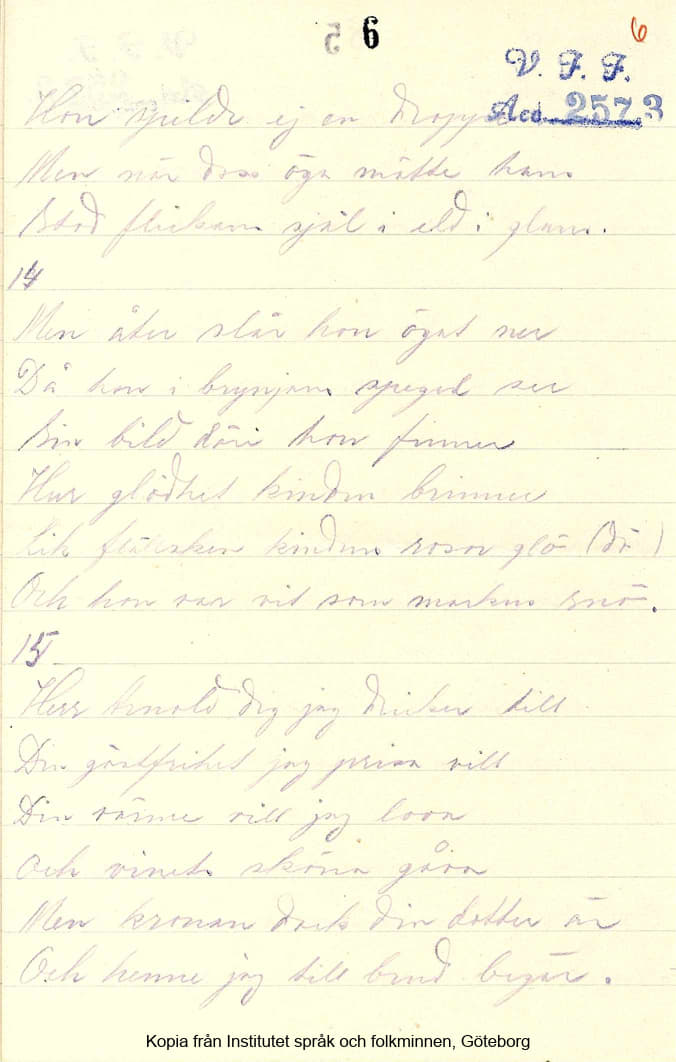 6
6
V. F. F.
Acc. 2573
Hon spilde ej en droppe
Men när dess öga mötte hans
Stod flickans själ i eld i glans.
14
Men åter slår hon ögat ner
Då hon i brynjans spegel ser
Sin bild däri hon finner
Hur glödhet kinden brinner
Lik kinden rosor glö (dö)
Och hon var vit som markens snö.
15
Herr Arnold dig jag dricker till
Din gästfrihet jag prisa vill
Din värme vill jag lova
Och vinets sköna gåva
Men kronan dock din dotter är
Och henne jag till brud begär.
Kopia från Institutet språk och folkminnen, Göteborg